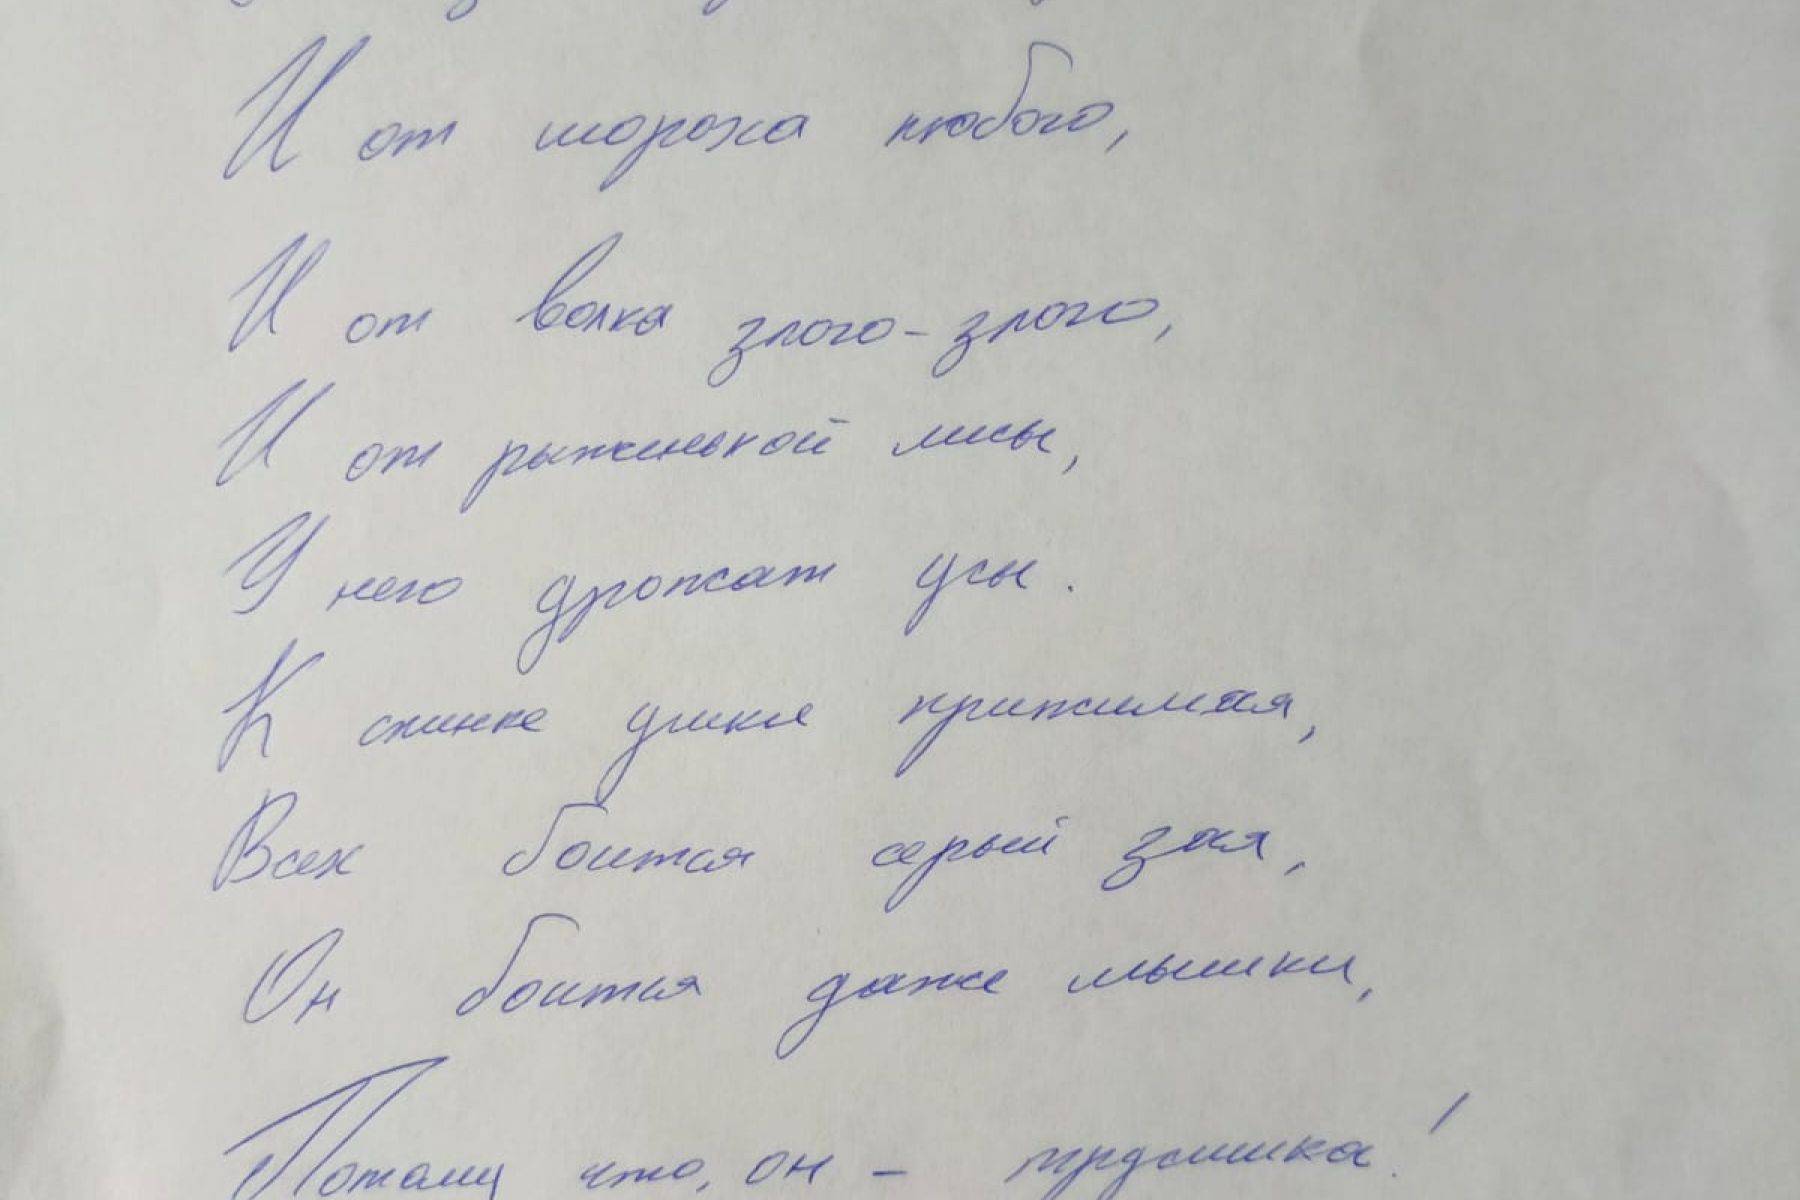 И от шороха любого,
И от волка злого-злого,
И от рыженькой лисы,
У него дрожат усы.
К спинке ушки прижимая,
Всех боится серый зая,
Он боится даже мышки,
Потому что, он - трусишка!